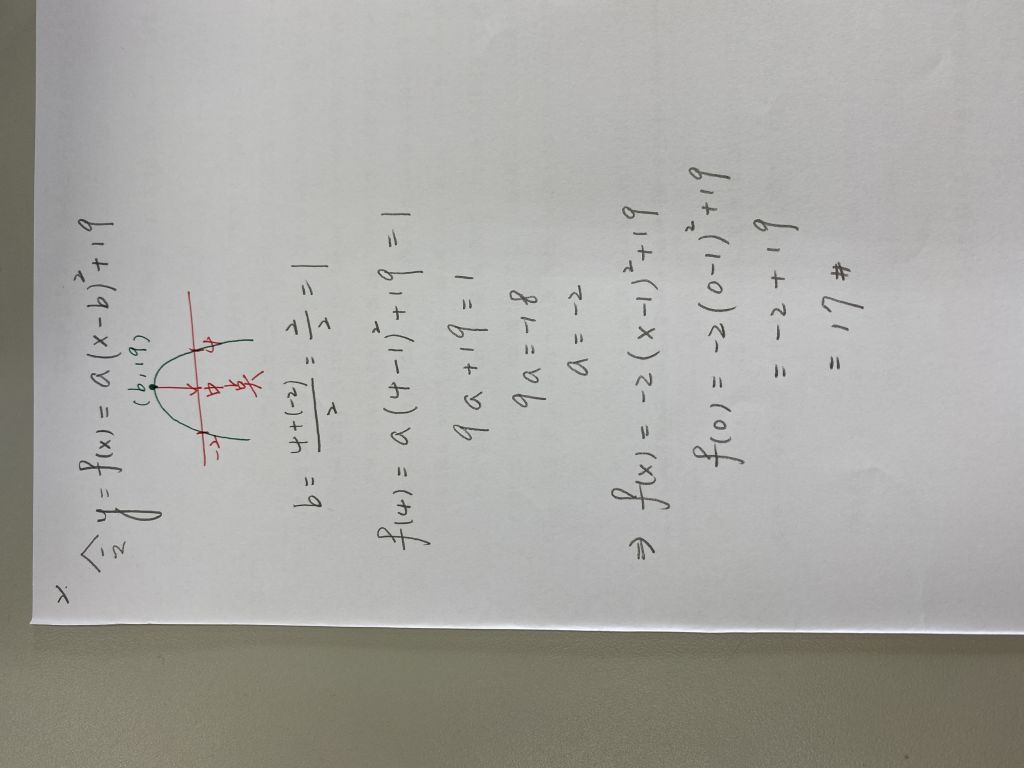 2.
令 y = f(x) = a(x-b)²+19
(b,19)
-2 中點 4
b = \frac{4+(-2)}{2} = \frac{2}{2} = 1
f(4) = a(4-1)²+19 = 1
9a+19 = 1
9a = -18
a = -2
⇒ f(x) = -2(x-1)²+19
f(0) = -2(0-1)²+19
= -2+19
= 17 #